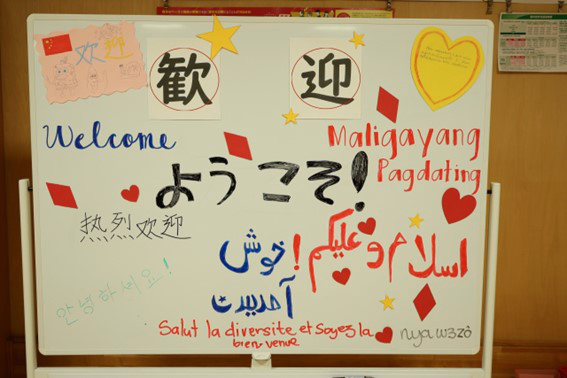 欢迎
歓
迎
Welcome
Maligayang
Pagdating
ようこそ!
热烈欢迎
اسلام وعلیکم!
خوش
آمدیدت
안녕하세요!
Salut la diversite et Soyez la
bienvenue
nya w3zô